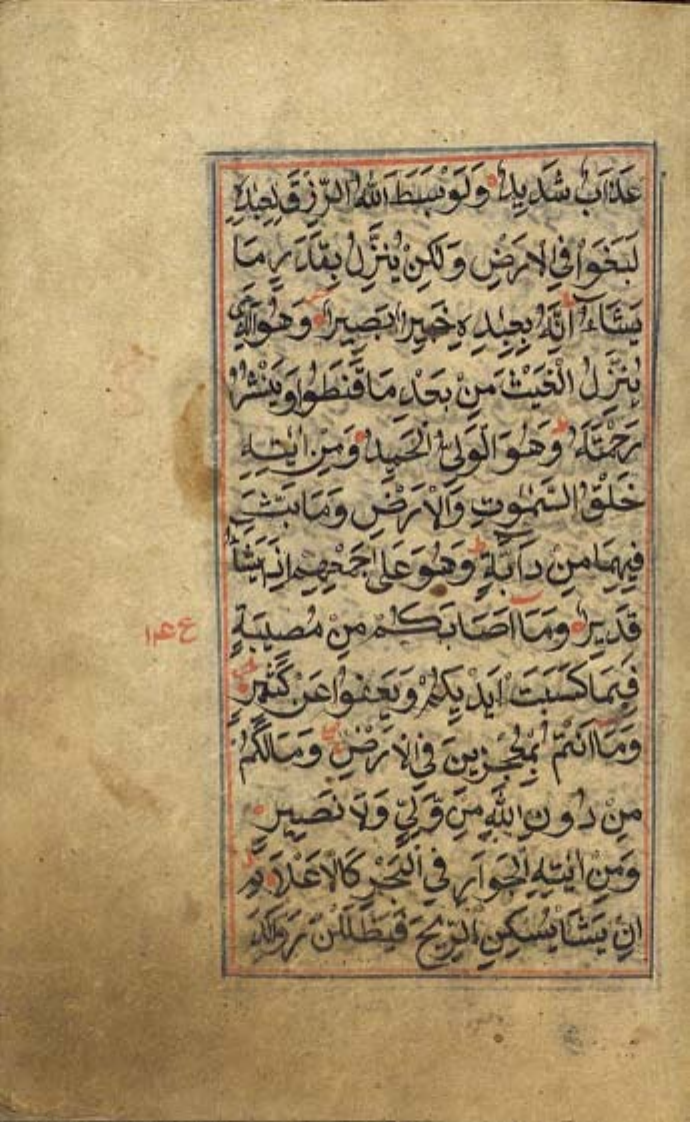 عَذَابٌ شَدِيدٌ وَلَوْ بَسَطَ اللهُ الرِّزْقَ لِعِبَادِهِ
لَبَغَوْا فِي الْاَرْضِ وَلٰكِنْ يُنَزِّلُ بِقَدَرٍ مَا
يَشَاءُ اِنَّهٗ بِعِبَادِهٖ خَبِيْرٌ بَصِيْرٌ وَهُوَ الَّذِي
يُنَزِّلُ الْغَيْثَ مِنْ بَعْدِ مَا قَنَطُوْا وَيَنْشُرُ
رَحْمَتَهٗ وَهُوَ الْوَلِيُّ الْحَمِيْدُ وَمِنْ اٰيٰتِهٖ
خَلْقُ السَّمٰوٰتِ وَالْاَرْضِ وَمَا بَثَّ
فِيْهِمَا مِنْ دَابَّةٍ وَهُوَ عَلٰى جَمْعِهِمْ اِذَا يَشَاءُ
قَدِيْرٌ وَمَا اَصَابَكُمْ مِنْ مُصِيْبَةٍ
فَبِمَا كَسَبَتْ اَيْدِيْكُمْ وَيَعْفُوْا عَنْ كَثِيْرٍ
وَمَا اَنْتُمْ بِمُعْجِزِيْنَ فِي الْاَرْضِ وَمَا لَكُمْ
مِنْ دُوْنِ اللهِ مِنْ وَّلِيٍّ وَلَا نَصِيْرٍ
وَمِنْ اٰيٰتِهِ الْجَوَارِ فِي الْبَحْرِ كَالْاَعْلَامِ
اِنْ يَشَاْ يُسْكِنِ الرِّيْحَ فَيَظْلَلْنَ رَوَاكِدَ